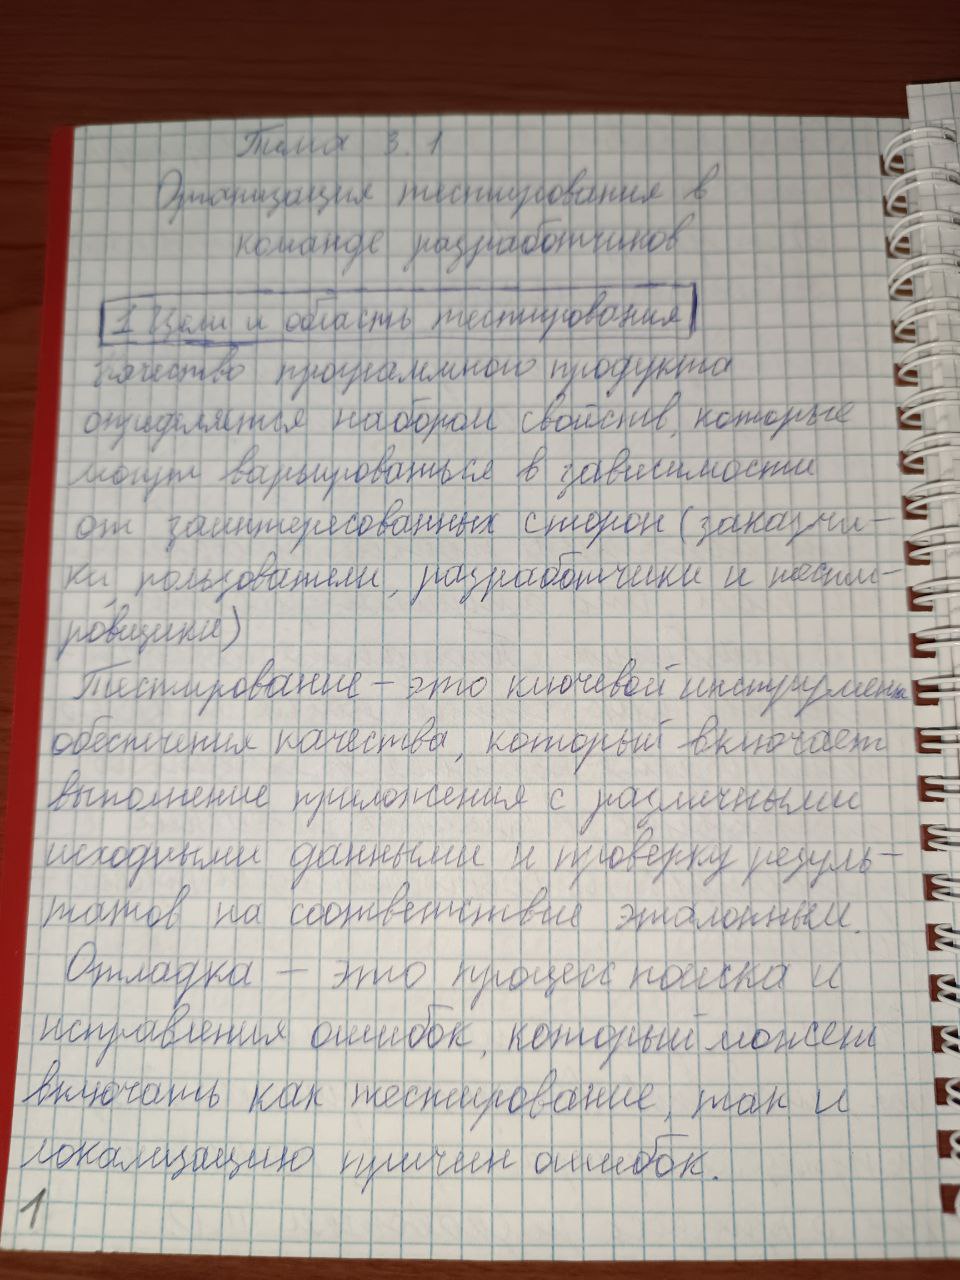 Тема 3.1
Организация тестирования в
команде разработчиков
1 Цели и область тестирования
Качество программного продукта
определяется набором свойств, которые
могут варьироваться в зависимости
от заинтересованных сторон (заказчи-
ки, пользователи, разработчики и тести-
ровщики)
Тестирование – это ключевой инструмент
обеспечения качества, который включает
выполнение приложения с различными
исходными данными и проверку резуль-
татов на соответствие эталонным.
Отладка – это процесс поиска и
исправления ошибок, который может
включать как тестирование, так и
локализацию причин ошибок.
1